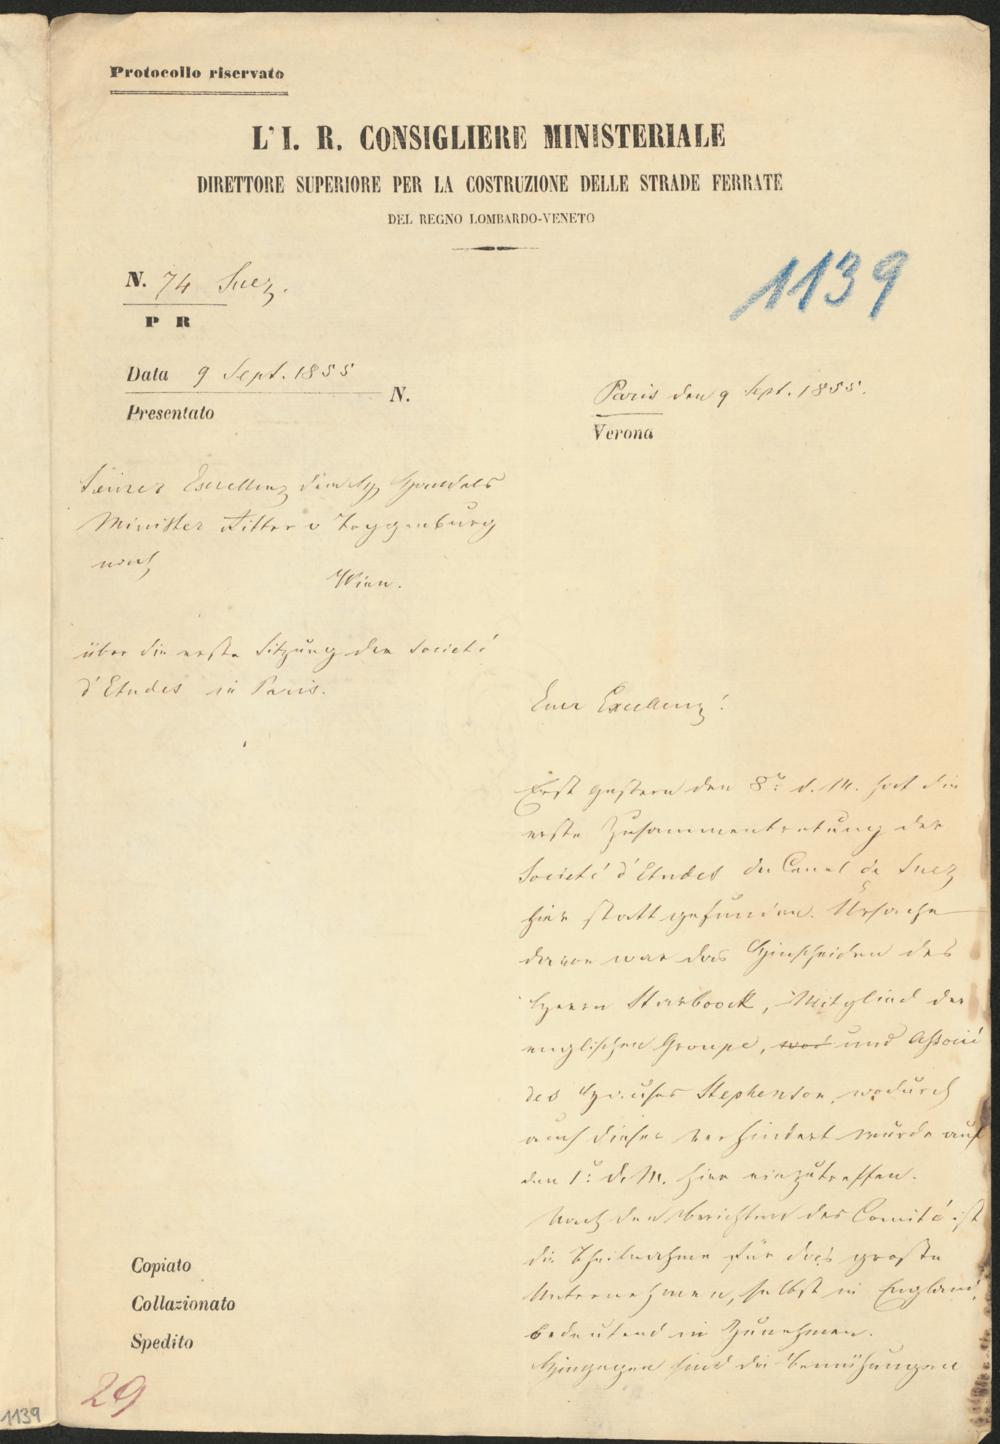 Protocollo riservato
L' I. R. CONSIGLIERE MINISTERIALE
DIRETTORE SUPERIORE PER LA COSTRUZIONE DELLE STRADE FERRATE
DEL REGNO LOMBARDO-VENETO
N. 74 Suez.
P R
1139
Data 9 Sept. 1855
N.
Presentato
Paris den 9 Sept. 1855.
Verona
Seiner Excellenz Handels
Minister Ritter v Toggenburg
nach
Wien.
über die erste Sitzung der Societé
d'Etudes in Paris.
Euer Excellenz!
Erst gestern den 8t. d. M. hat die
erste Zusammentretung der
Societé d'Etudes du Canal de Suez
hier statt gefunden. Ursache
davon war das Hinscheiden des
Herrn Starboock, Mitglied der
englischen Groupe, und Associé
des Hauses Stephenson, wodurch
auch dieser verhindert wurde auf
den 1t. d. M. hier einzutreffen.
Nach den Berichten des Comité ist
die Theilnahme für das große
Unternehmen, selbst in England,
bedeutend in Zunehmen.
Hingegen sind die Bemühungen
Copiato
Collazionato
Spedito
29
1139